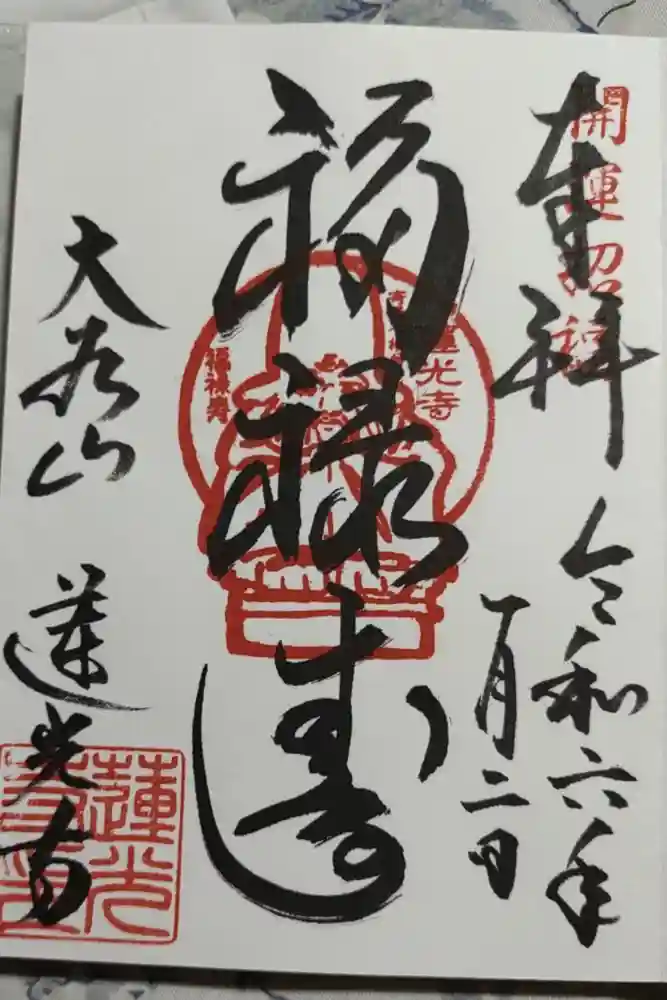 奉拝
開運招福
令和六年
一月二日
福禄寿
蓮光寺
福禄寿
大谷山
蓮光寺
蓮光